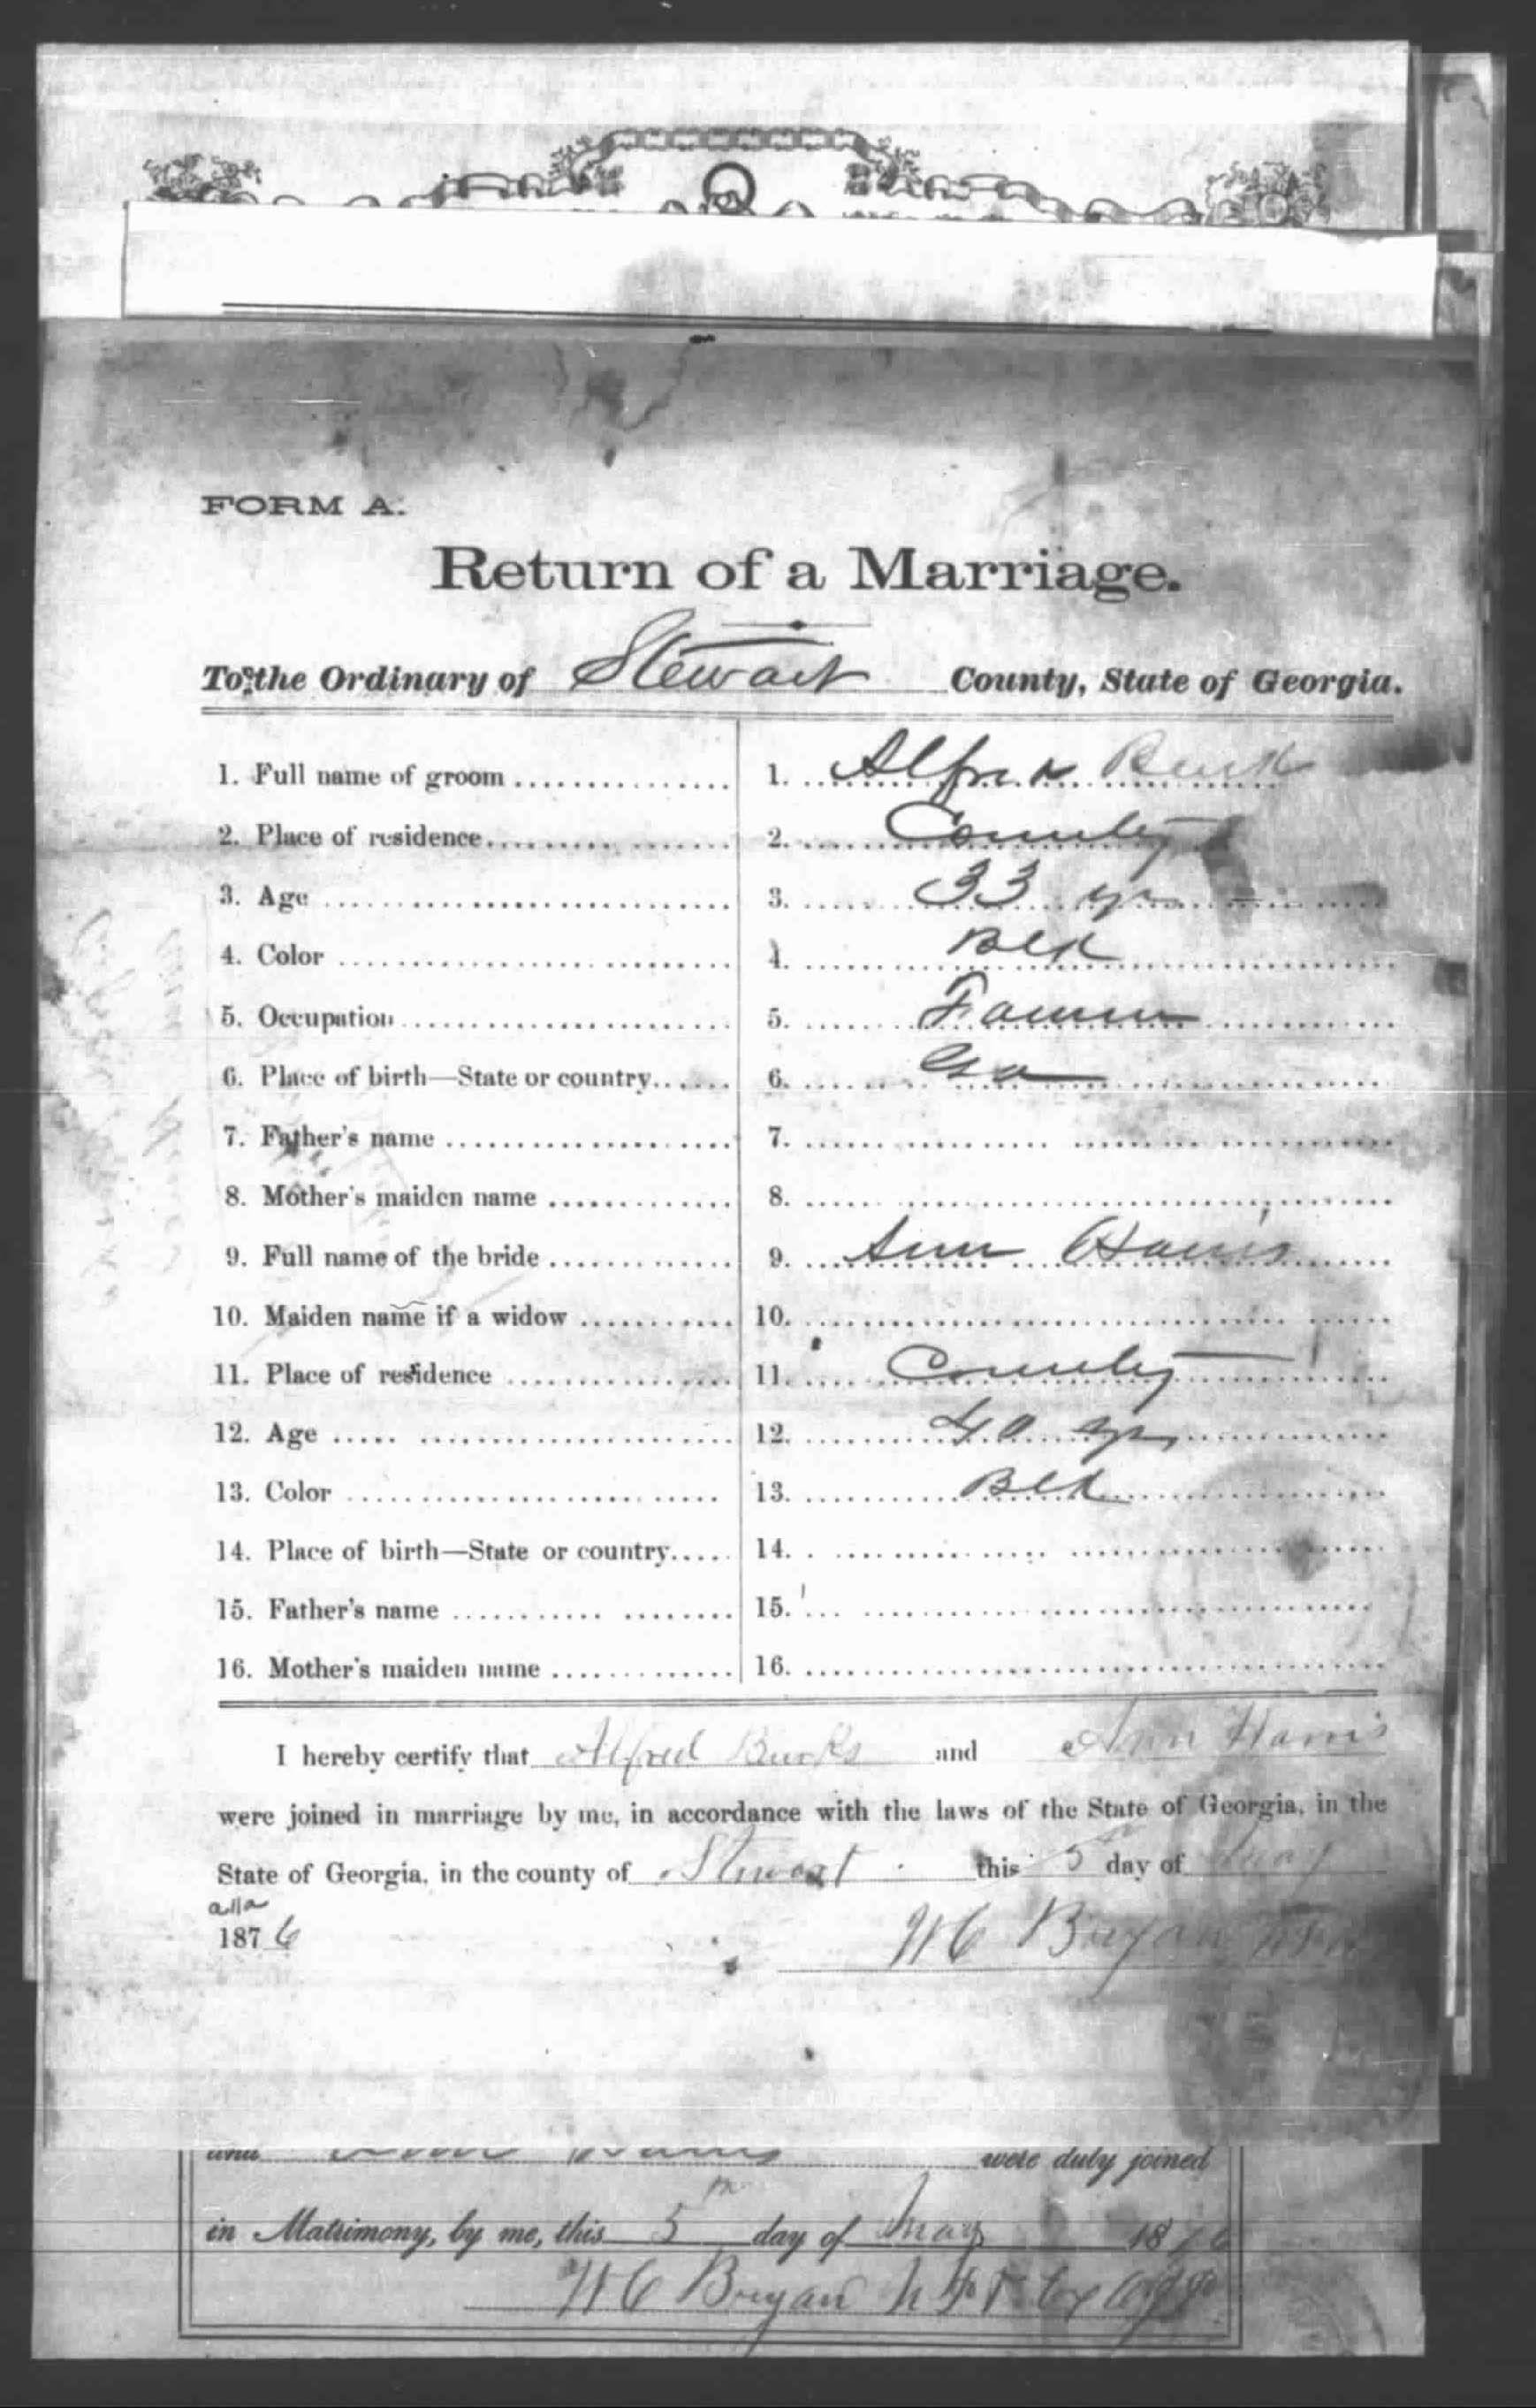 FORM A.
Return of a Marriage.
To the Ordinary of Stewart County, State of Georgia.
1. Full name of groom 1. Alfred Burk
2. Place of residence 2. County
3. Age 3. 33 yr
4. Color 4. Blk
5. Occupation 5. Farmer
6. Place of birth—State or country 6. Ga
7. Father's name 7.
8. Mother's maiden name 8.
9. Full name of the bride 9. Ann Harris
10. Maiden name if a widow 10.
11. Place of residence 11. County
12. Age 12. 40 yr
13. Color 13. Blk
14. Place of birth—State or country 14.
15. Father's name 15.
16. Mother's maiden name 16.
I hereby certify that Alfred Burks and Ann Harris
were joined in marriage by me, in accordance with the laws of the State of Georgia, in the
State of Georgia, in the county of Stewart this 5th day of May
1876
W C Bryan
and Ann Harris were duly joined
in Matrimony, by me, this 5th day of May 1876
W C Bryan N P & Ex Off J P